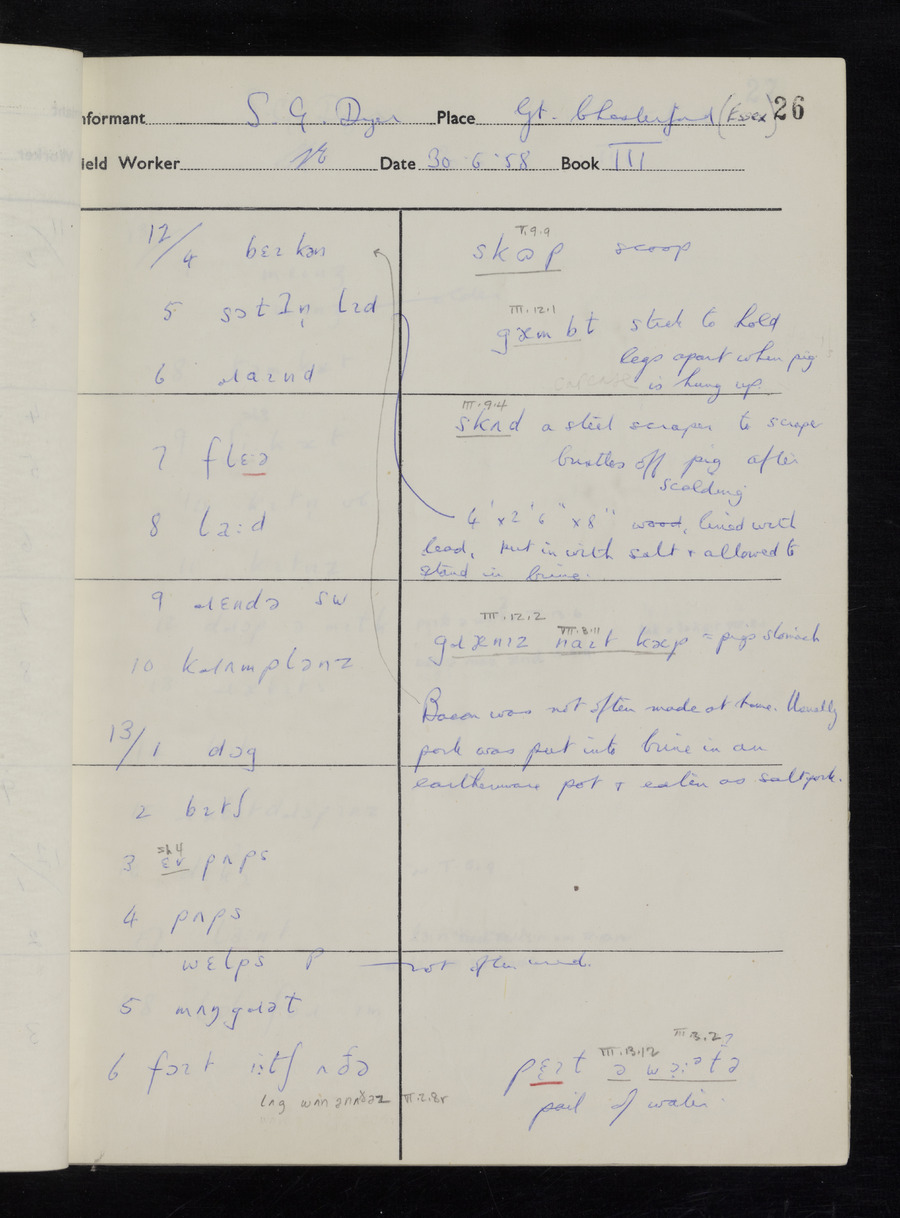 26
Informant S. G. Dyer Place Gt. Chesterford (Essex)
Field Worker Date 30·6·58 Book III
12/4 bɛɪkən
5 lɪd
6 ɹaɪnd
7 flɛə
8 la:d
9 ɹɛndə
10 kɹʌmplənz
13/1 dɔg
2 bɪtʃ
3 pʌps
4 pʌps
wɛlps P — not often used.
5 mʌŋgɹət
6 fəɪt i:tʃ ʌðə
lʌg wʌn ənʌðəz VI.2.8r
V.9.9
skəp scoop
III.12.1
gæmbt stick to hold
legs apart when pig
is hung up.
III.9.4
skʌd a steel scraper to scrape
bristles off pig after
scalding
4' x 2' 6" x 8" wood, lined with
lead, put in with salt + allowed to
stand in brine.
III.12.2
VII.8.11
gɹænɪz naɪt kæp = pigs stomach
Bacon was not often made at home. Usually
pork was put into brine in an
earthenware pot + eaten as salt pork.
III.13.12
III.3.2?
pɛɪt ə
pail of water.